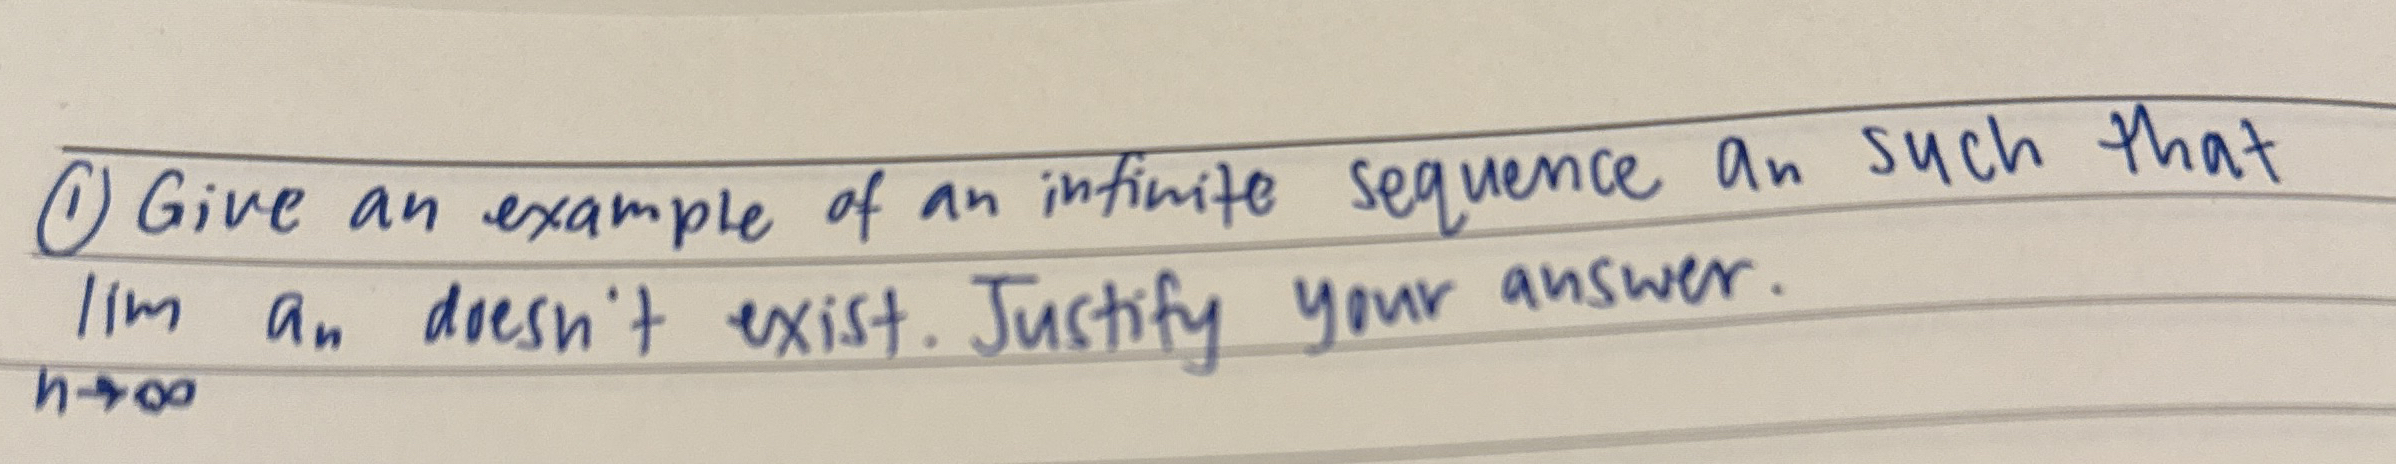 ① Give an example of an infinite sequence an such that
lim an doesn't exist. Justify your answer.
n→∞